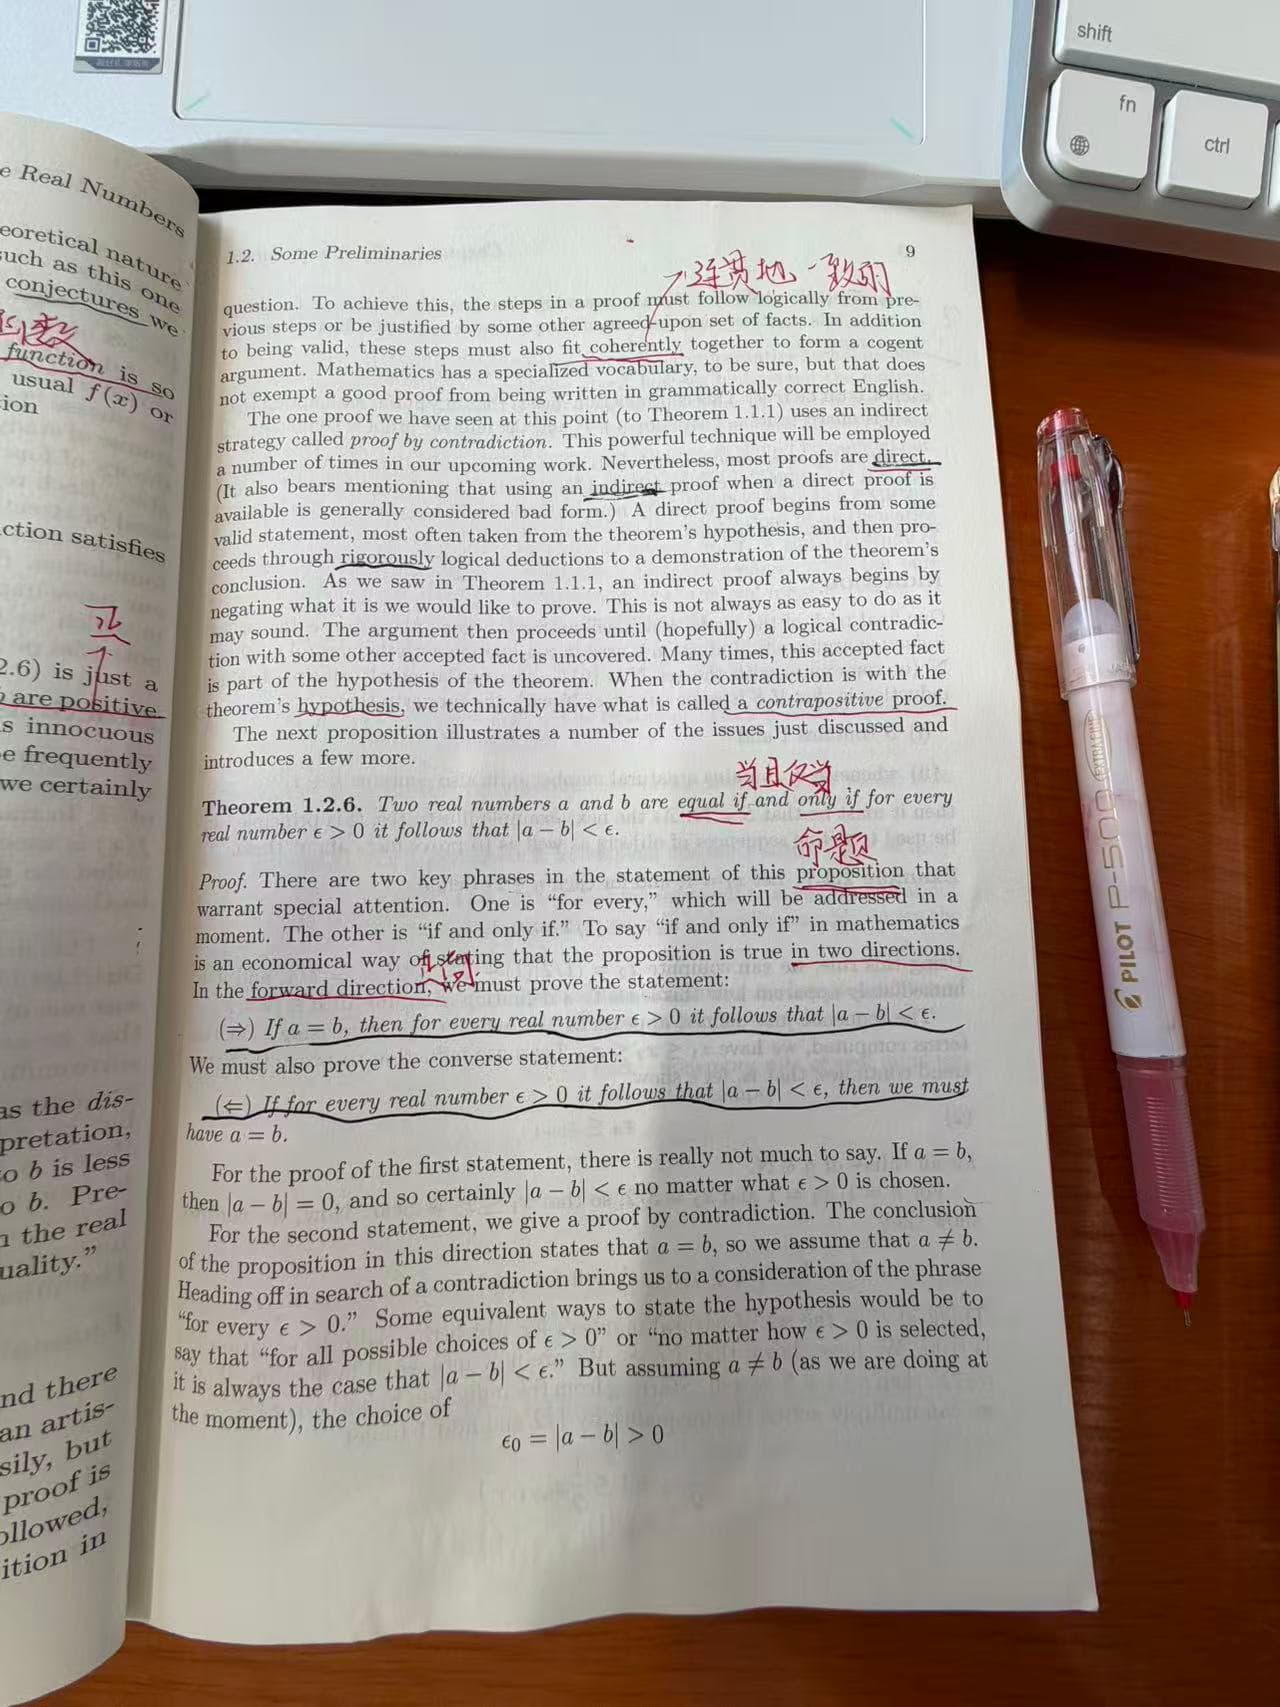 shift
fn
ctrl
e Real Numbers
eoretical nature
such as this one
conjectures we
函数
function is so
usual f(x) or
ion
ction satisfies
正
2.6) is just a
are positive
s innocuous
e frequently
we certainly
as the dis-
pretation,
to b is less
o b. Pre-
n the real
uality."
nd there
an artis-
sily, but
proof is
ollowed,
ition in
1.2. Some Preliminaries 9
连贯地, 一致
question. To achieve this, the steps in a proof must follow logically from pre-
vious steps or be justified by some other agreed-upon set of facts. In addition
to being valid, these steps must also fit coherently together to form a cogent
argument. Mathematics has a specialized vocabulary, to be sure, but that does
not exempt a good proof from being written in grammatically correct English.
The one proof we have seen at this point (to Theorem 1.1.1) uses an indirect
strategy called proof by contradiction. This powerful technique will be employed
a number of times in our upcoming work. Nevertheless, most proofs are direct.
(It also bears mentioning that using an indirect proof when a direct proof is
available is generally considered bad form.) A direct proof begins from some
valid statement, most often taken from the theorem's hypothesis, and then pro-
ceeds through rigorously logical deductions to a demonstration of the theorem's
conclusion. As we saw in Theorem 1.1.1, an indirect proof always begins by
negating what it is we would like to prove. This is not always as easy to do as it
may sound. The argument then proceeds until (hopefully) a logical contradic-
tion with some other accepted fact is uncovered. Many times, this accepted fact
is part of the hypothesis of the theorem. When the contradiction is with the
theorem's hypothesis, we technically have what is called a contrapositive proof.
The next proposition illustrates a number of the issues just discussed and
introduces a few more.
当且仅当
Theorem 1.2.6. Two real numbers a and b are equal if and only if for every
real number ϵ > 0 it follows that |a − b| < ϵ.
命题
Proof. There are two key phrases in the statement of this proposition that
warrant special attention. One is "for every," which will be addressed in a
moment. The other is "if and only if." To say "if and only if" in mathematics
is an economical way of stating that the proposition is true in two directions.
In the forward direction, we must prove the statement:
(⇒) If a = b, then for every real number ϵ > 0 it follows that |a − b| < ϵ.
We must also prove the converse statement:
(⇐) If for every real number ϵ > 0 it follows that |a − b| < ϵ, then we must
have a = b.
For the proof of the first statement, there is really not much to say. If a = b,
then |a − b| = 0, and so certainly |a − b| < ϵ no matter what ϵ > 0 is chosen.
For the second statement, we give a proof by contradiction. The conclusion
of the proposition in this direction states that a = b, so we assume that a ≠ b.
Heading off in search of a contradiction brings us to a consideration of the phrase
"for every ϵ > 0." Some equivalent ways to state the hypothesis would be to
say that "for all possible choices of ϵ > 0" or "no matter how ϵ > 0 is selected,
it is always the case that |a − b| < ϵ." But assuming a ≠ b (as we are doing at
the moment), the choice of
ϵ₀ = |a − b| > 0
PILOT P-500 EXTRA FINE